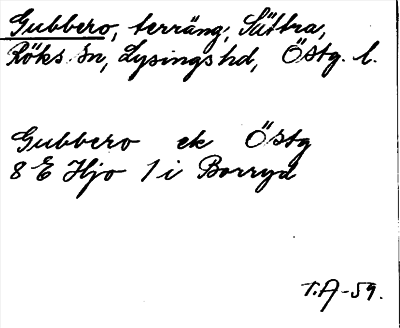 Gubbero, terräng, Sättra,
Röks sn, Lysings hd, Östg. l.
Gubbero ek Östg
8 E Hjo 1 i Borryd
T.A-59.